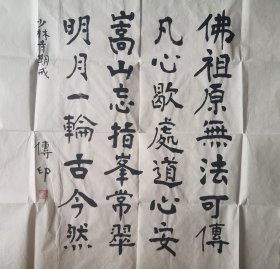 佛祖原無法可傳
凡心歇處道心安
嵩山忘指峯常翠
明月一輪古今然
少林寺期戒
傳印